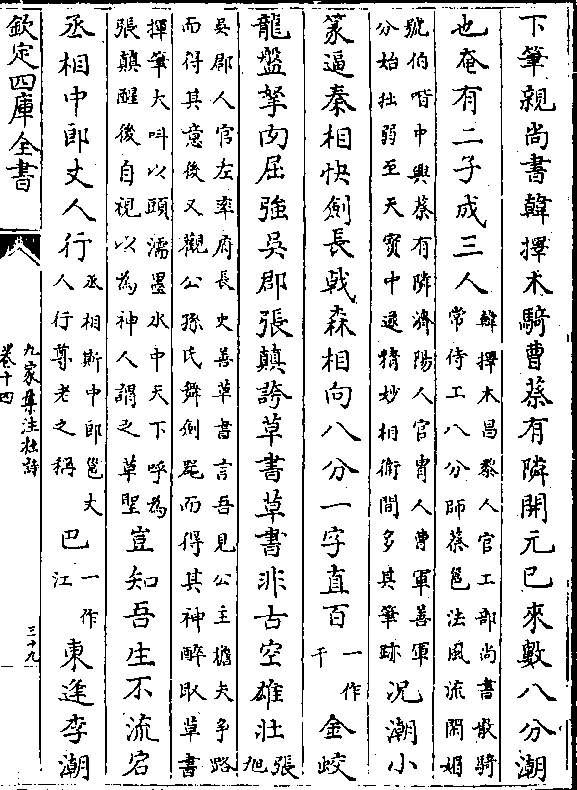 下筆親尚書韓擇木騎曹蔡有隣開元已來數八分潮
也奄有二子成三人
韓擇木昌黎人官工部尚書散騎
常侍工八分師蔡邕法風流閑媚
號伯喈中興蔡有隣濟陽人官冑人曹軍善軍
分始拙弱至天寶中遂精妙相衛間多其筆跡
况潮小
篆逼秦相快劍長戟森相向八分一字直百
一作
千
金蛟
龍盤拏肉屈強吳郡張顛誇草書草書非古空雄壯
張
旭
吳郡人官左率府長史善草書言吾見公主檐夫爭路
而得其意後又觀公孫氏舞劍器而得其神醉取草書
揮筆大叫以頭濡墨水中天下呼為
張顛醒後自視以為神人謂之草聖
豈知吾生不流宕
丞相中郎丈人行
丞相斯中郎邕丈
人行尊老之稱
巴
一作
江
東逢李潮
欽定四庫全書
九家集注杜詩
卷十四
三十九